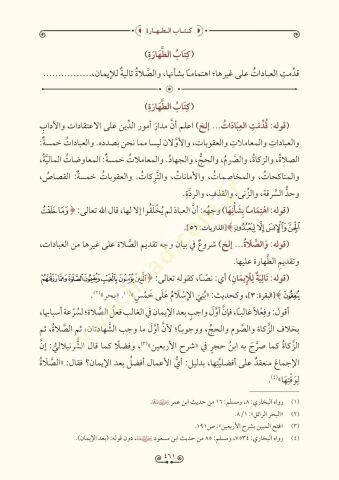 كتاب الطهارة
(كِتَابُ الطَّهَارَةِ)
قدِّمتِ العباداتُ على غيرها؛ اهتماماً بشأنها، والصَّلاةُ تاليةٌ للإيمان، ................
(كِتَابُ الطَّهَارَةِ)
(قوله: قُدِّمَتِ العِبَادَاتُ... إلخ) اعلم أنَّ مدارَ أمور الدِّين على الاعتقادات والآداب
والعبادات والمعاملاتِ والعقوبات، والأوَّلان ليسا مما نحن بصدده. والعباداتُ خمسةٌ:
الصلاةُ، والزكاةُ، والصَّومُ، والحجُّ، والجهادُ. والمعاملاتُ خمسةٌ: المعاوضاتُ الماليَّةُ،
والمناكحاتُ، والمخاصماتُ، والأماناتُ، والتَّرِكاتُ. والعقوباتُ خمسةٌ: القصاصُ،
وحدُّ السَّرقة، والزِّنى، والقذفِ، والرِّدَّة.
(قوله: اهْتِمَاماً بِشَأْنِهَا) وجهُه: أنَّ العبادَ لم يُخلَقُوا إلا لها، قال الله تعالى: ﴿وَمَا خَلَقْتُ
اَلْجِنَّ وَاَلْإِنسَ إِلَّا لِيَعْبُدُونِ﴾ [الذاريات: ٥٦].
(قوله: وَالصَّلَاةُ... إلخ) شروعٌ في بيان وجه تقديم الصَّلاة على غيرها من العبادات،
وتقديمِ الطَّهارة عليها.
(قوله: تَالِيَةٌ لِلْإِيمَانِ) أي: نصًّا، كقوله تعالى: ﴿الَّذِينَ يُؤْمِنُونَ بِالْغَيْبِ وَيُقِيمُونَ الصَّلَاةَ وَمِمَّا رَزَقْنَاهُمْ
يُنفِقُونَ﴾ [البقرة: ٣]، وكحديث: «بُنِيَ الإِسْلَامُ عَلَى خَمْسٍ»(١). «بحر»(٢).
أقول: وفعلاً غالباً، فإنَّ أوَّل واجبٍ بعد الإيمان في الغالب فعلُ الصَّلاة؛ لسُرعة أسبابها،
بخلاف الزَّكاة والصَّوم والحجِّ، ووجوباً؛ لأنَّ أوَّلَ ما وجب الشَّهادتان، ثم الصَّلاةُ، ثم
الزَّكاةُ كما صرَّح به ابنُ حجرٍ في «شرح الأربعين»(٣)، وفضلاً كما قال الشُّرنبلاليُّ: إنَّ
الإجماعَ منعقدٌ على أفضليَّتها، بدليل: أيُّ الأعمال أفضلُ بعد الإيمان؟ فقال: «الصَّلَاةُ
لِوَقْتِهَا»(٤).
(١) رواه البخاري: ٨، ومسلم: ١٦ من حديث ابن عمر
(٢) «البحر الرائق»: ٨/١.
(٣) «فتح المبين بشرح الأربعين»: ص١٩١.
(٤) رواه البخاري: ٧٥٣٤، ومسلم: ٨٥ من حديث ابن مسعود ، دون قوله: (بعد الإيمان).
٤٦١